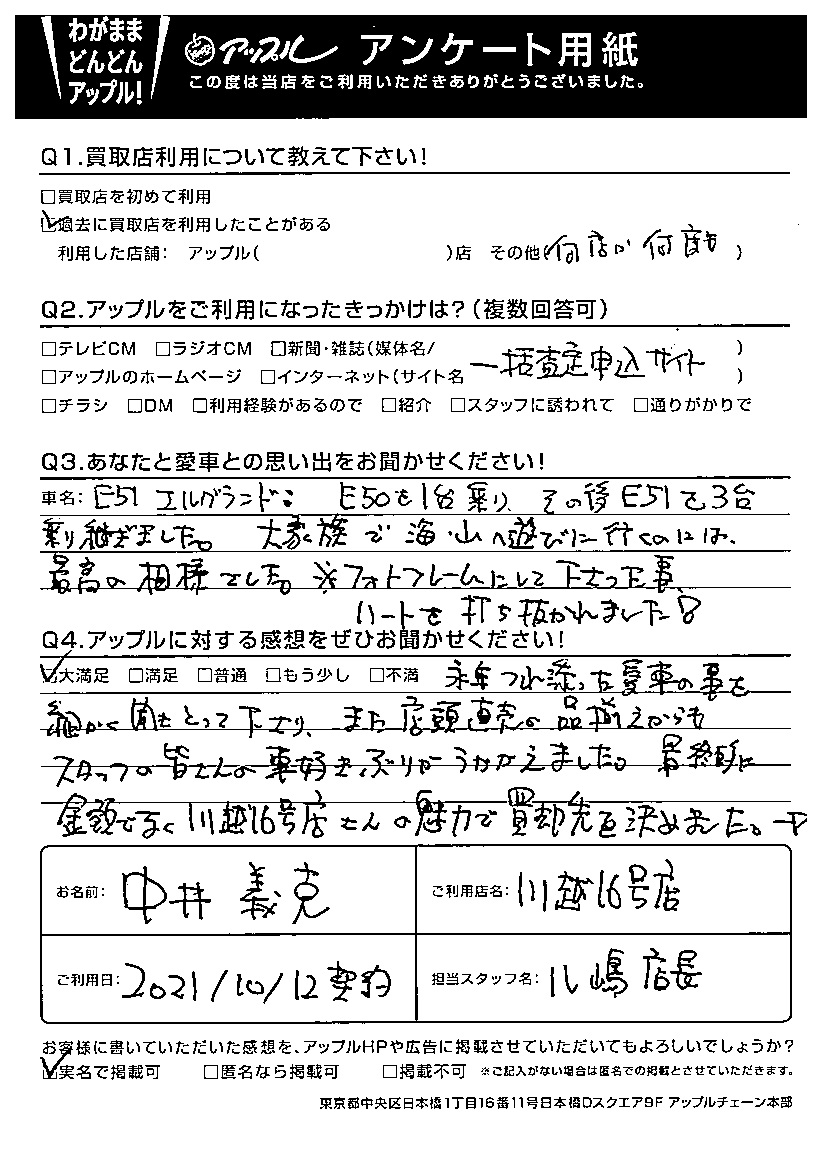 わがまま
どんどん
アップル!
アップル アンケート用紙
この度は当店をご利用いただきありがとうございました。
Q1.買取店利用について教えて下さい!
□買取店を初めて利用
☑過去に買取店を利用したことがある
利用した店舗: アップル( )店 その他(何店か 何度も )
Q2.アップルをご利用になったきっかけは?(複数回答可)
□テレビCM □ラジオCM □新聞・雑誌(媒体名/ )
□アップルのホームページ □インターネット(サイト名 一括査定申込サイト )
□チラシ □DM □利用経験があるので □紹介 □スタッフに誘われて □通りがかりで
Q3.あなたと愛車との思い出をお聞かせください!
車名: E51 エルグランド: E50を1台乗り、その後E51を3台
乗り継ぎました。 大家族で海・山へ遊びに行くのには、
最高の相棒でした。※フォトフレームにして下さった事、
ハートを打ち抜かれました!
Q4.アップルに対する感想をぜひお聞かせください!
☑大満足 □満足 □普通 □もう少し □不満 永年つれ添った愛車の事を
細かく聞きとって下さり、また店頭直売の品揃えからも
スタッフの皆さんの車好きぶりがうかがえました。 最終的に
金額でなく川越16号店さんの魅力で買却先を決めました。
お名前: 中井 義克
ご利用店名: 川越16号店
ご利用日: 2021/10/12 契約
担当スタッフ名: 嶋店長
お客様に書いていただいた感想を、アップルHPや広告に掲載させていただいてもよろしいでしょうか?
☑実名で掲載可 □匿名なら掲載可 □掲載不可 ※ご記入がない場合は匿名での掲載とさせていただきます。
東京都中央区日本橋1丁目16番11号日本橋Dスクエア9F アップルチェーン本部